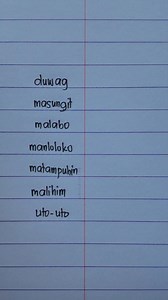 duwag
masungit
malabo
manloloko
matampuhin
malihim
uto-uto